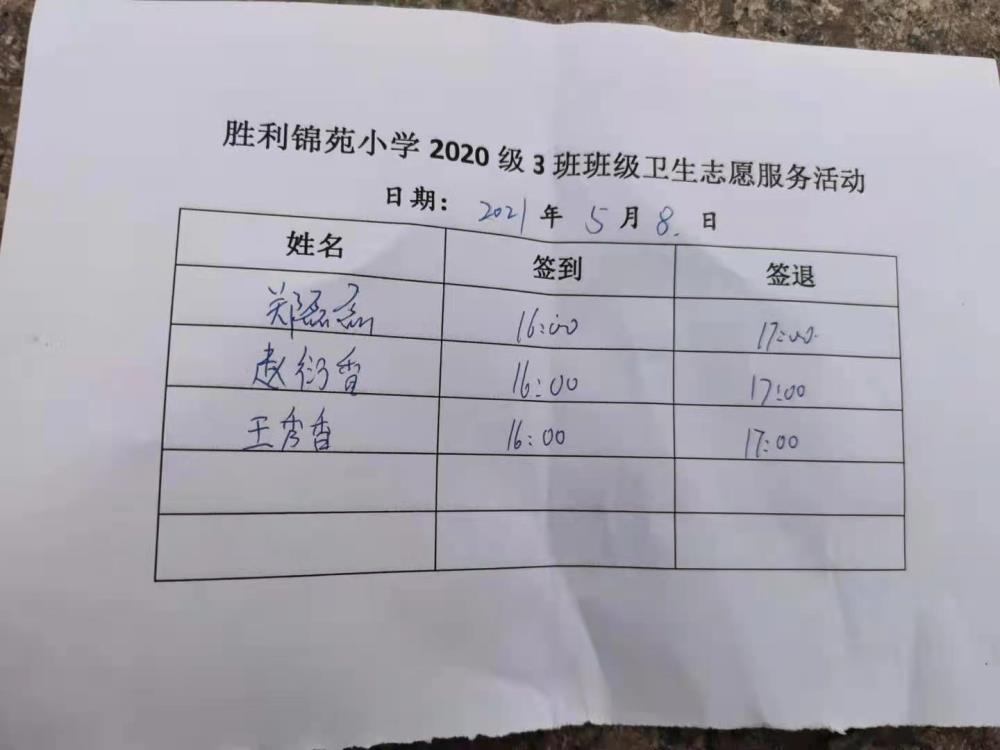 胜利锦苑小学2020级3班班级卫生志愿服务活动
日期: 2021年5月8.日
姓名 签到 签退
郑磊磊 16:00 17:00.
赵衍香 16:00 17:00
王秀香 16:00 17:00